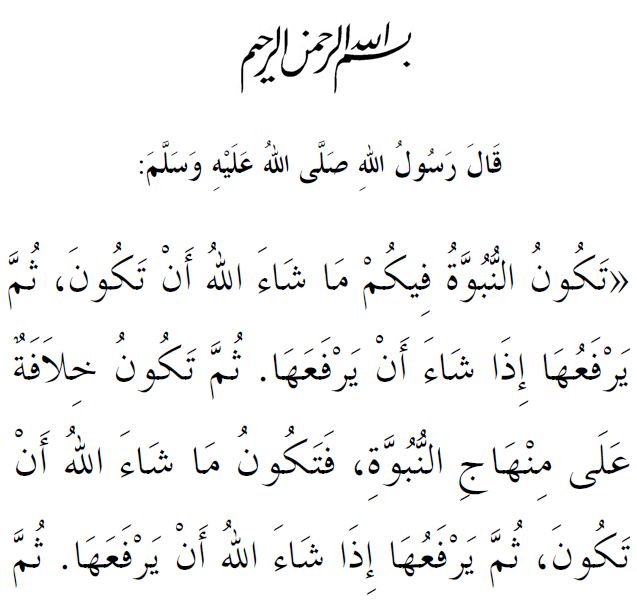 بسم الله الرحمن الرحيم
قَالَ رَسُولُ اللهِ صَلَّى اللهُ عَلَيْهِ وَسَلَّمَ:
«تَكُونُ النُّبُوَّةُ فِيكُمْ مَا شَاءَ اللهُ أَنْ تَكُونَ، ثُمَّ
يَرْفَعُهَا إِذَا شَاءَ أَنْ يَرْفَعَهَا. ثُمَّ تَكُونُ خِلاَفَةٌ
عَلَى مِنْهَاجِ النُّبُوَّةِ، فَتَكُونُ مَا شَاءَ اللهُ أَنْ
تَكُونَ، ثُمَّ يَرْفَعُهَا إِذَا شَاءَ اللهُ أَنْ يَرْفَعَهَا. ثُمَّ